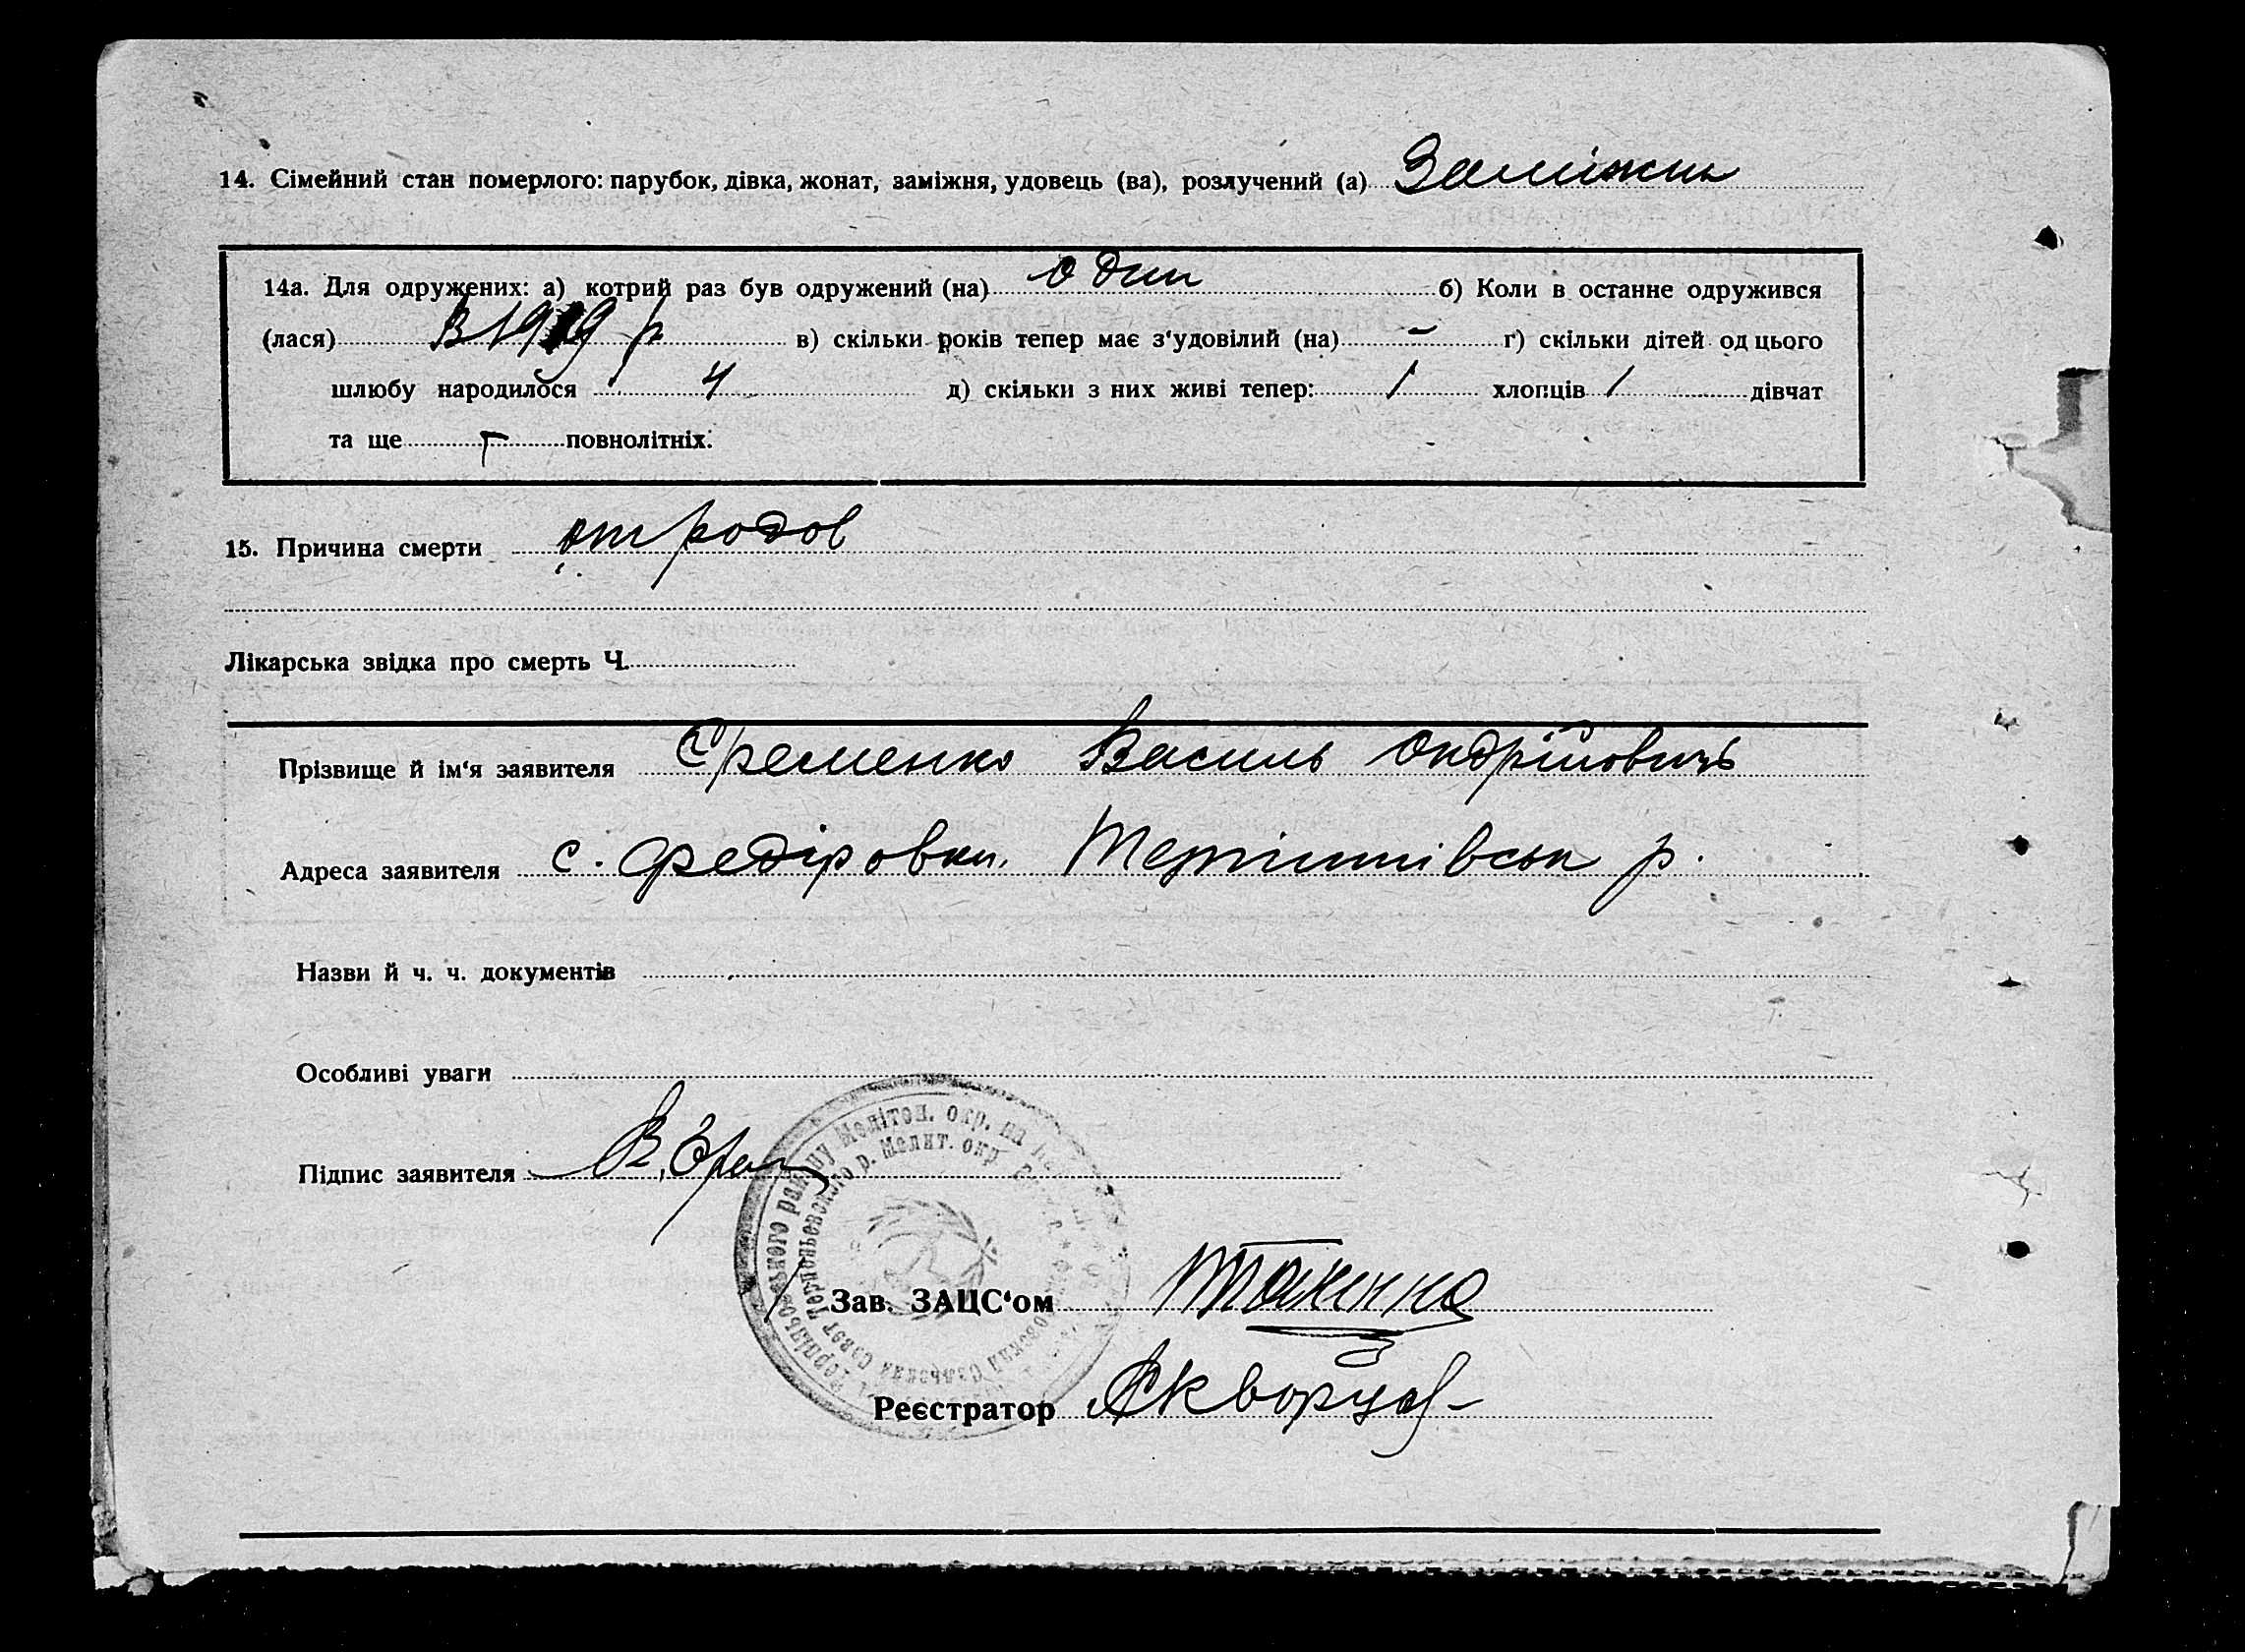 14. Сімейний стан померлого: парубок, дівка, жонат, заміжня, удовець (ва), розлучений (а) Заміжня
14а. Для одружених: а) котрий раз був одружений (на) один б) Коли в останне одружився
(лася) В 1919 р в) скільки років тепер має з‘удовілий (на) - г) скільки дітей од цього
шлюбу народилося 4 д) скільки з них живі тепер: 1 хлопців 1 дівчат
та ще - повнолітніх.
15. Причина смерти от родов
Лікарська звідка про смерть Ч.
Прізвище й ім‘я заявителя Єременко Василь Ондрійовичь
Адреса заявителя с. Федіровка. р.
Назви й ч. ч. документів
Особливі уваги
Підпис заявителя В. Ерем
Терпільовського району Мелітоп. окр. на
Терпольевского р. Мелит. окр.
Зав. ЗАЦС‘ом
Реєстратор Скворцов